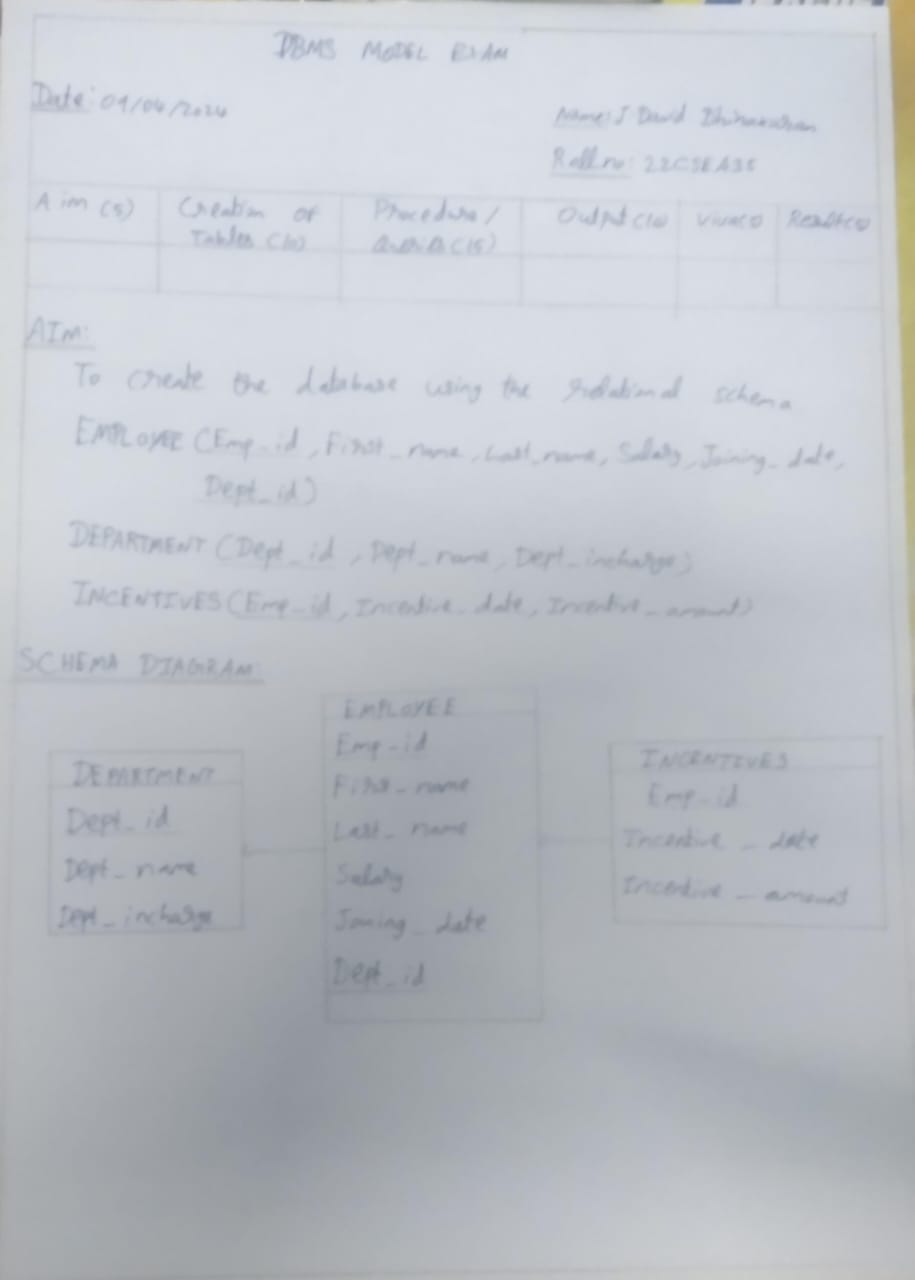 DBMS MODEL EXAM
Date: 09/04/2024
Name: J David
Roll.no: 22CSEA35
Aim (5) Creation of Tables (10) Procedure / Queries (15) Output (10) Viva Result
AIM:
To create the database using the relational schema
EMPLOYEE (Emp_id, First_name, Last_name, Salary, Joining_date,
Dept_id)
DEPARTMENT (Dept_id, Dept_name, Dept_incharge)
INCENTIVES (Emp_id, Incentive_date, Incentive_amount)
SCHEMA DIAGRAM:
DEPARTMENT
Dept_id
Dept_name
Dept_incharge
EMPLOYEE
Emp_id
First_name
Last_name
Salary
Joining_date
Dept_id
INCENTIVES
Emp_id
Incentive_date
Incentive_amount